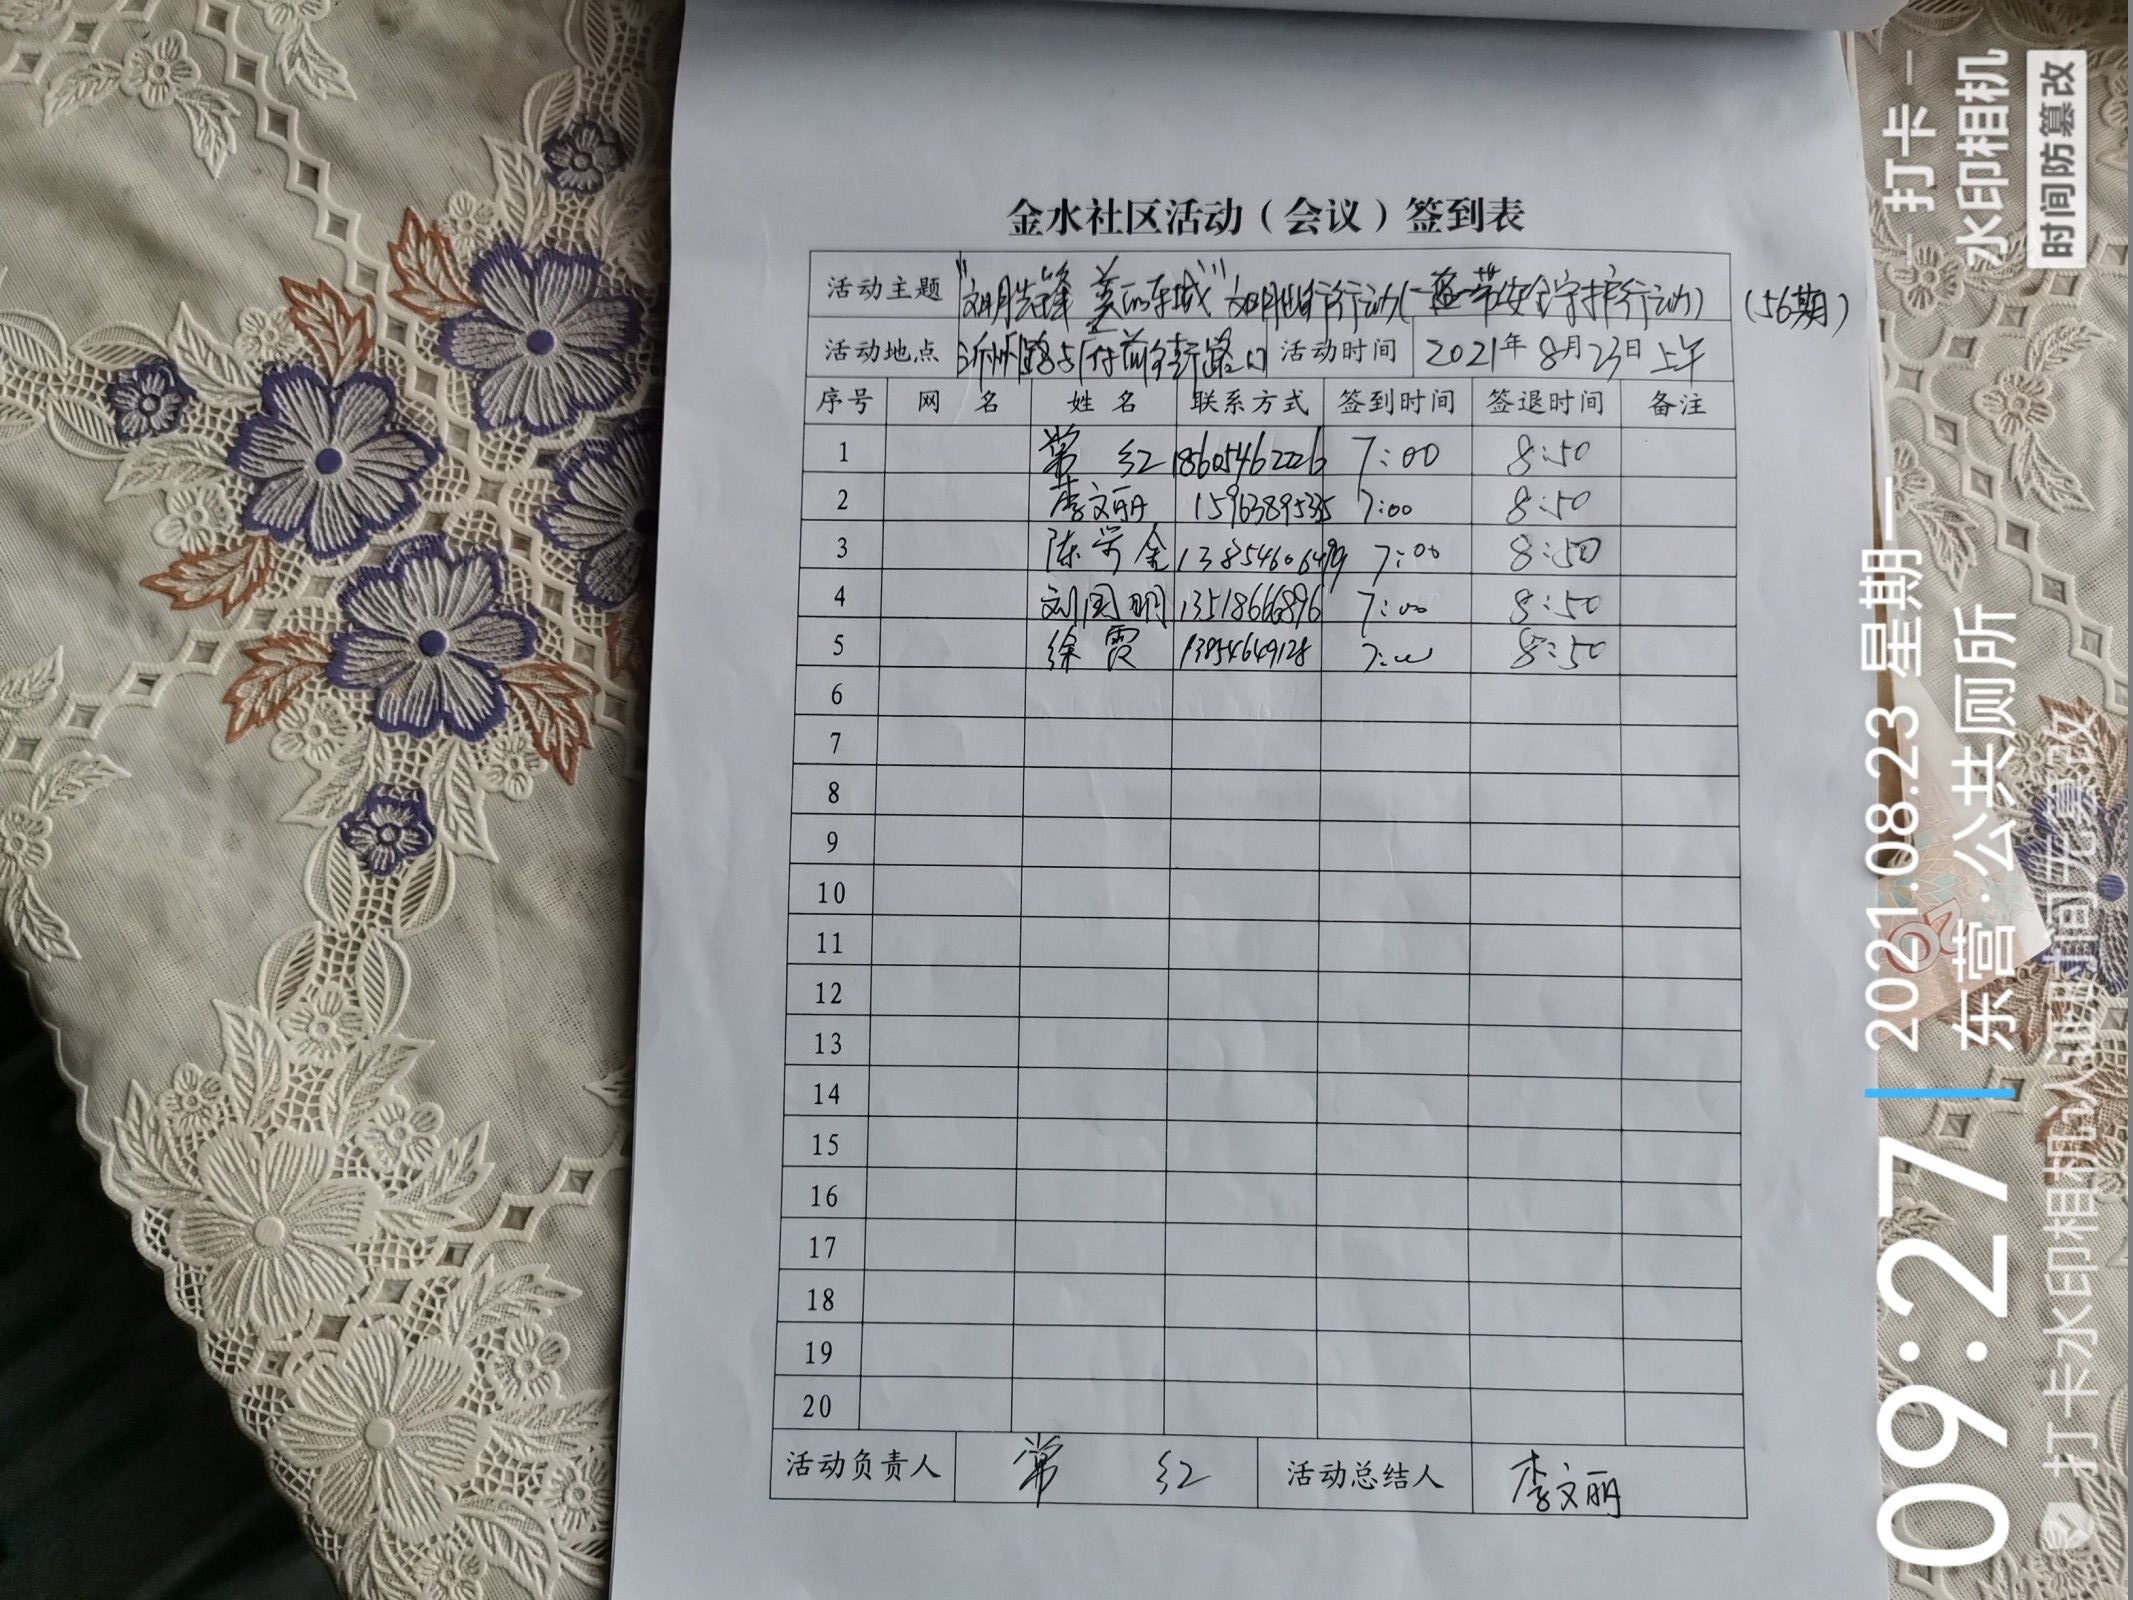 金水社区活动（会议）签到表
活动主题 "文明先锋 美丽东城" 文明出行行动(一盔一带安全守护行动) (56期)
活动地点 沂州路与府前街路口 活动时间 2021年8月23日上午
序号 网 名 姓 名 联系方式 签到时间 签退时间 备注
1 常 红 18605462226 7:00 8:50
2 李文丽 15963895335 7:00 8:50
3 陈学金 13854606499 7:00 8:50
4 刘国明 13518666896 7:00 8:50
5 徐霞 13954649128 7:00 8:50
6
7
8
9
10
11
12
13
14
15
16
17
18
19
20
活动负责人 常 红 活动总结人 李文丽
打卡
水印相机
时间防篡改
09:27
2021.08.23 星期一
东营·公共厕所
打卡水印相机认证时间无篡改